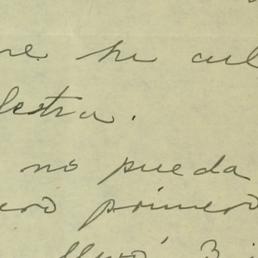 re su cul
lestra.
no pueda
ero primero
llevó 3